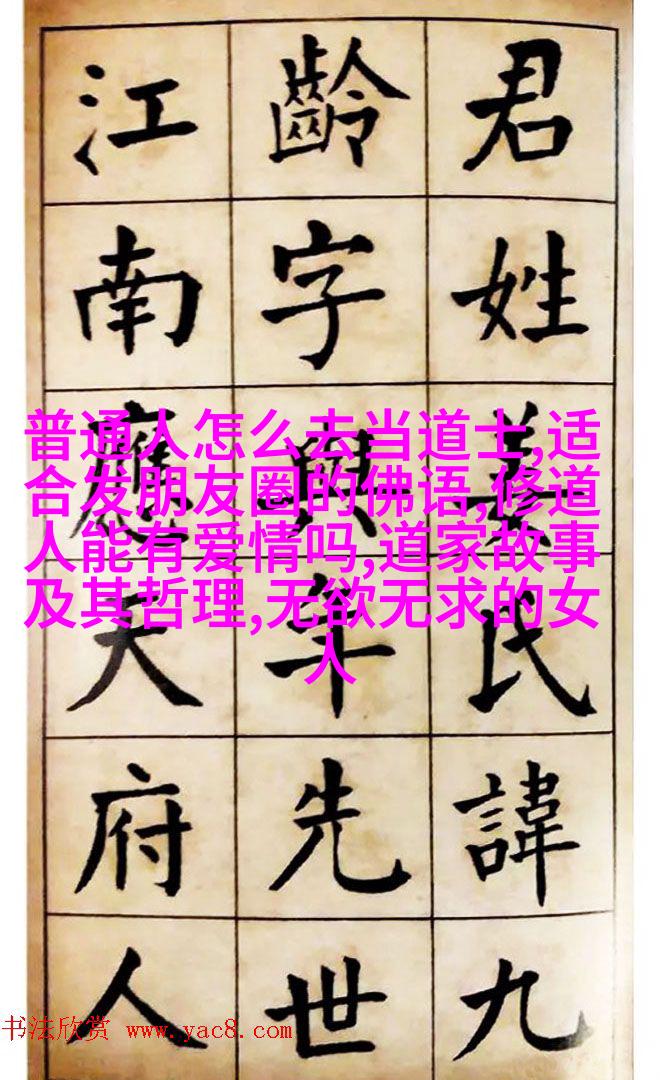 君姓氏諱九
齡字與年先世
江南應天府人
普通人怎么去当道士,适
合发朋友圈的佛语,修道
人能有爱情吗,道家故事
及其哲理,无欲无求的女
人
书法欣赏 www.yac8.com